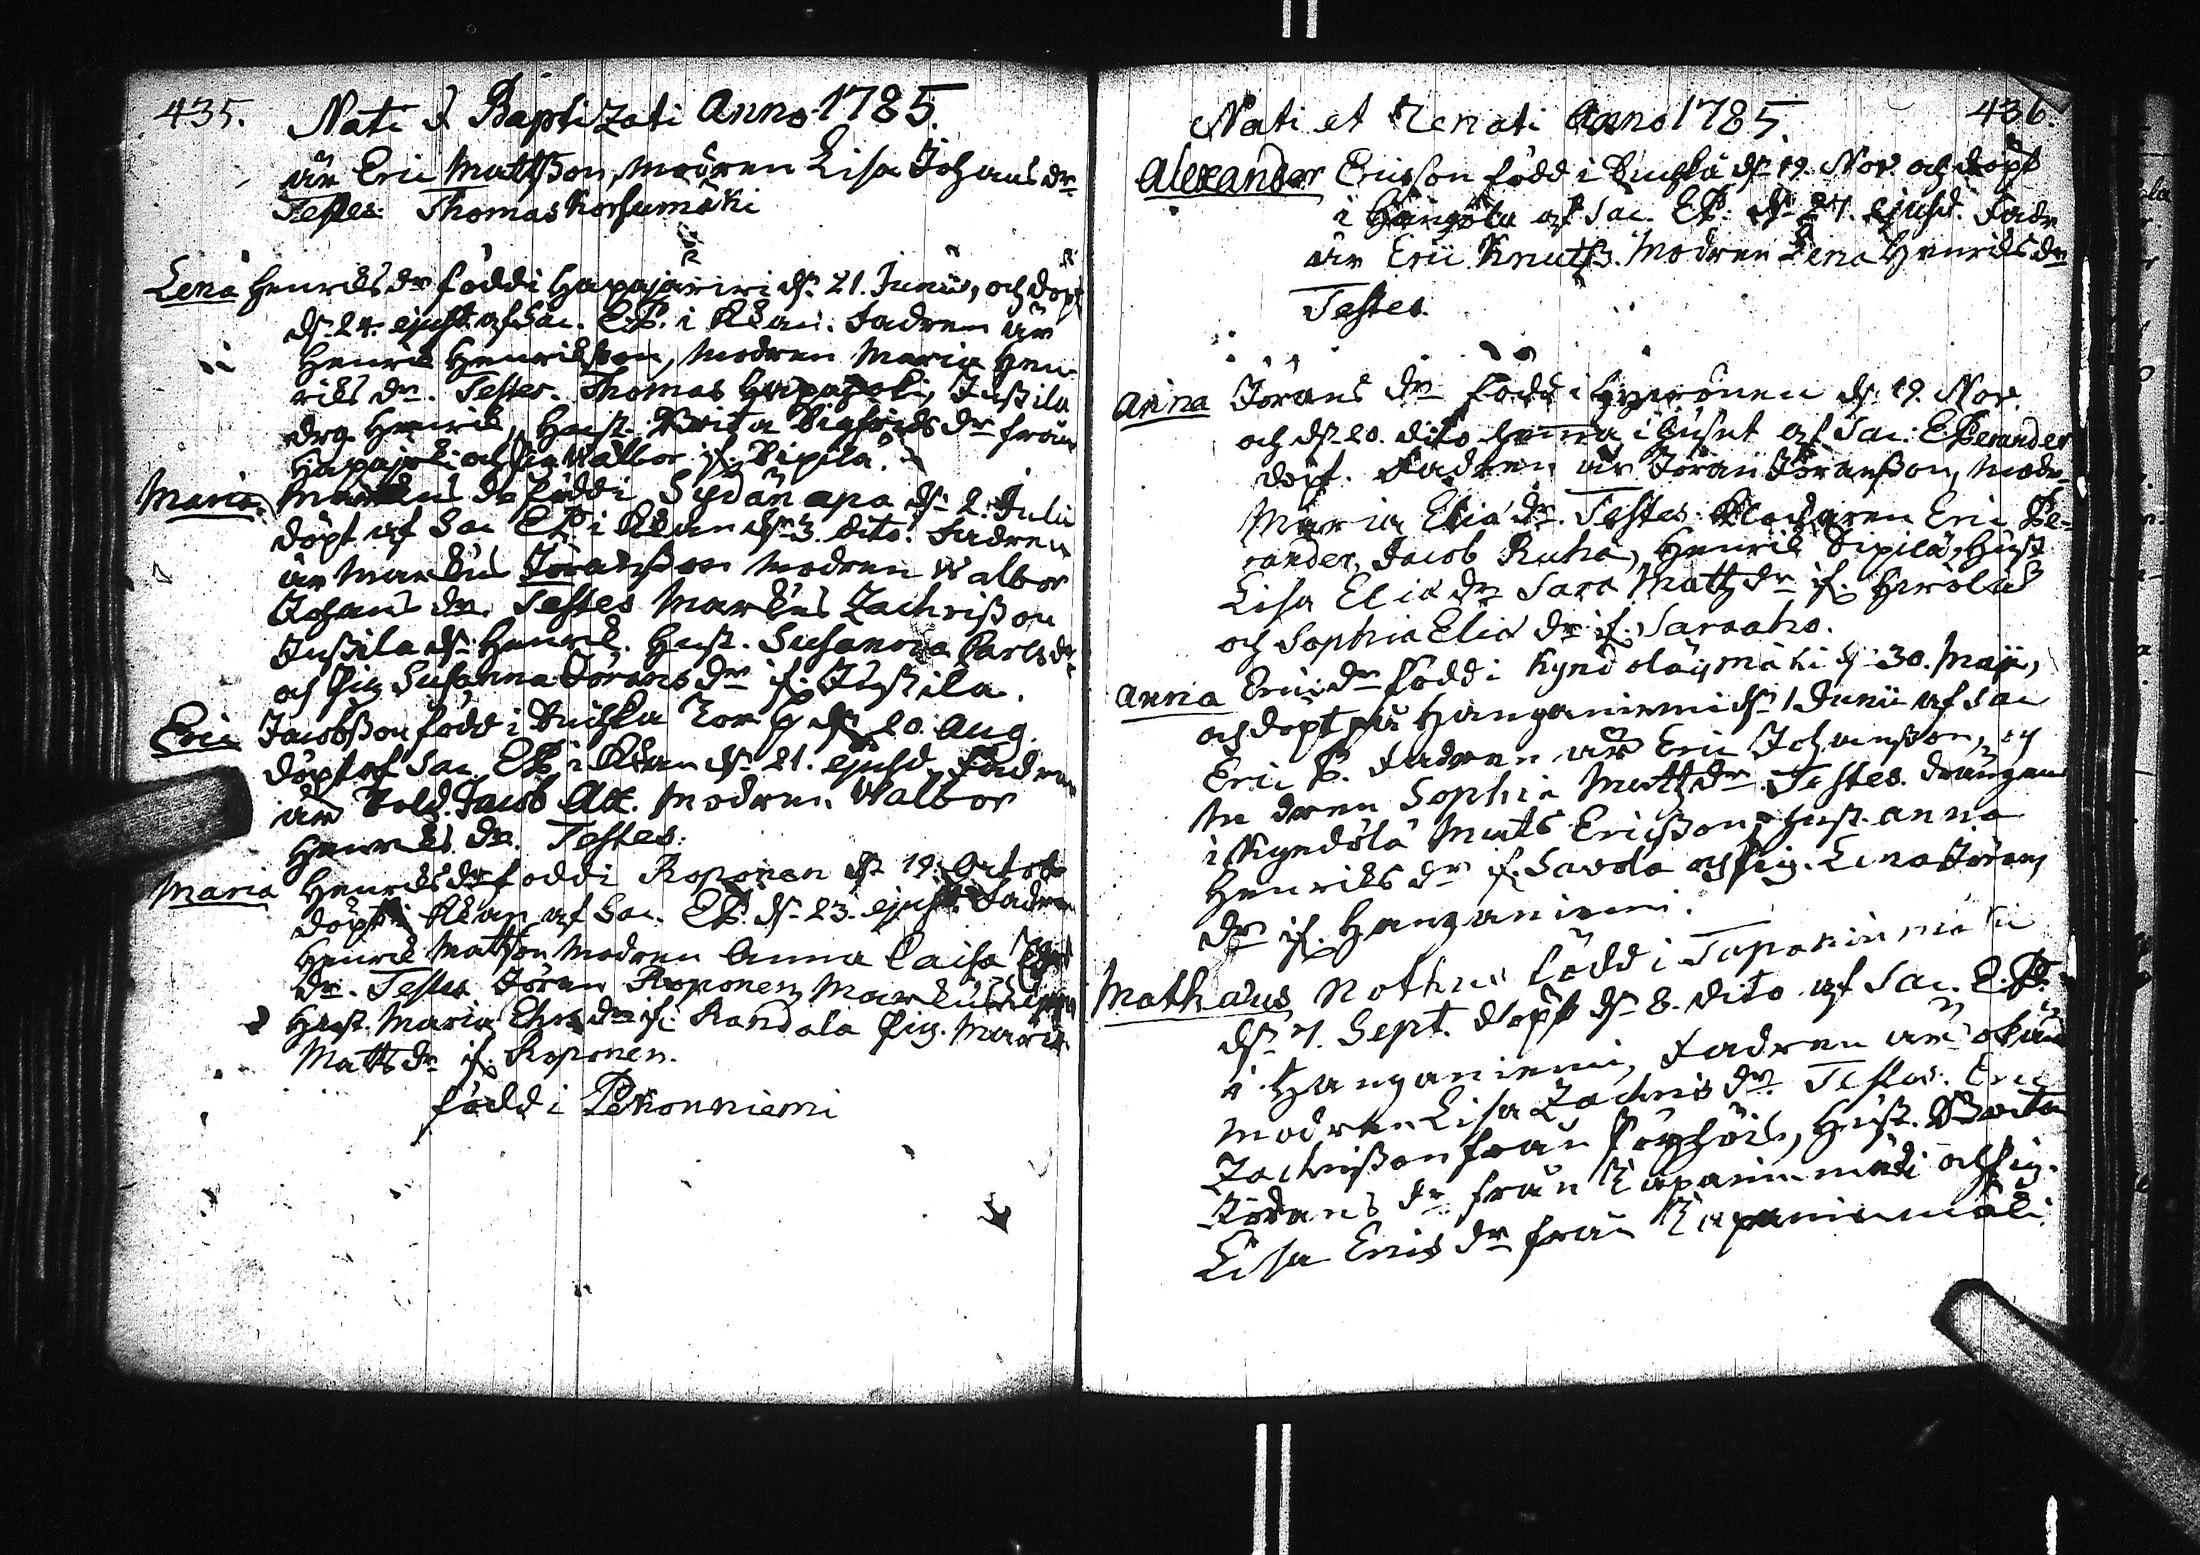 435. Nati & Baptizati Anno 1785.
är Eric Mattsson, modren Lisa Johansdr
Testes. Thomas
Lena Henricsdr född i Hapajärwi d. 21. Junii, och döpt
d. 24. ejusd. af Sac. E.P. i Kkan. Fadren är
Henric Henricsson, modren Maria Hen-
rics dr. Testes. Thomas Hapajoki, Jussila
drg. Henric, Hust. Brita Sigfridsdr från
Hapajoki och pig Walbor if. Sipilä.
Maria Marcus dr född i Sydänapa d. 2. Julii
döpt af Sac EP i Kkan d. 3. dito. Fadren
är Marcus Jöransson modren Walbor
Johans dr. Testes Marcus Zachrisson
Jussila dr. Henric. Hust. Susanna Carlsdr
och Pig Susanna Jöransdr if. Jussila.
Eric Jacobsson född i Torp d. 20. Aug.
döpt af Sac. EP i Kkan d. 21. ejusd. Fadren
är Sold. Jacob Alt. modren Walbor
Henrics dr. Testes.
Maria Henricsdr född i Roponen d. 19. Octob
döpt i Kkan af Sac. EP. d. 23. ejusd. Fadren
Henric Mattson modren Anna Caisa
dr. Testes Jöran Roponen, Marcus
Hust. Maria dr if. Randala Pig. Maria
Matts dr if. Roponen.
född i Pekonniemi
Nati et Renati Anno 1785. 436.
Alexander Ericsson född i d. 19. Nov. och döpt
i af Sac. EP. d. 27. ejusd. Fadr
är Eric Knutss. Modren Lena Henricsdr
Testes.
Anna Jörans dr född i Hyvönen d. 19. Nov.
och d. 20. dito hemma i huset af Sac. EPerander
döpt. Fadren är Jöran Jöransson, modr.
Maria Elia dr. Testes. Klockaren Eric Pe-
rander, Jacob Ruha, Henric Sipilä, Hust
Lisa Elia dr Sara Matts dr if. Herola
och Sophia Elia dr if. Saraaho.
Anna Ericsdr född i Kyndöläismäki d. 30. Maji,
och döpt på Hanganiemi d. 1 Junii af Sac
Eric P. Fadren är Eric Johansson, och
modren Sophia Matts dr. Testes. drängen
i Kyndölä Mats Ericsson, Hust. Anna
Henrics dr if. Savola och Pig. Lena Jörans
dr if. Hanganiemi.
Mathæus Nothus född i Tapaninmäki
d. 7. Sept. döpt d. 8. dito af Sac. E.P.
i Hanganiemi, Fadren är okänd
modren Lisa Zachris dr. Testes. Eric
Zachrisson från, Hust. Brita
Jörans dr från Tapaninmäki och pig.
Lisa Erics dr från Tapaninmäki.